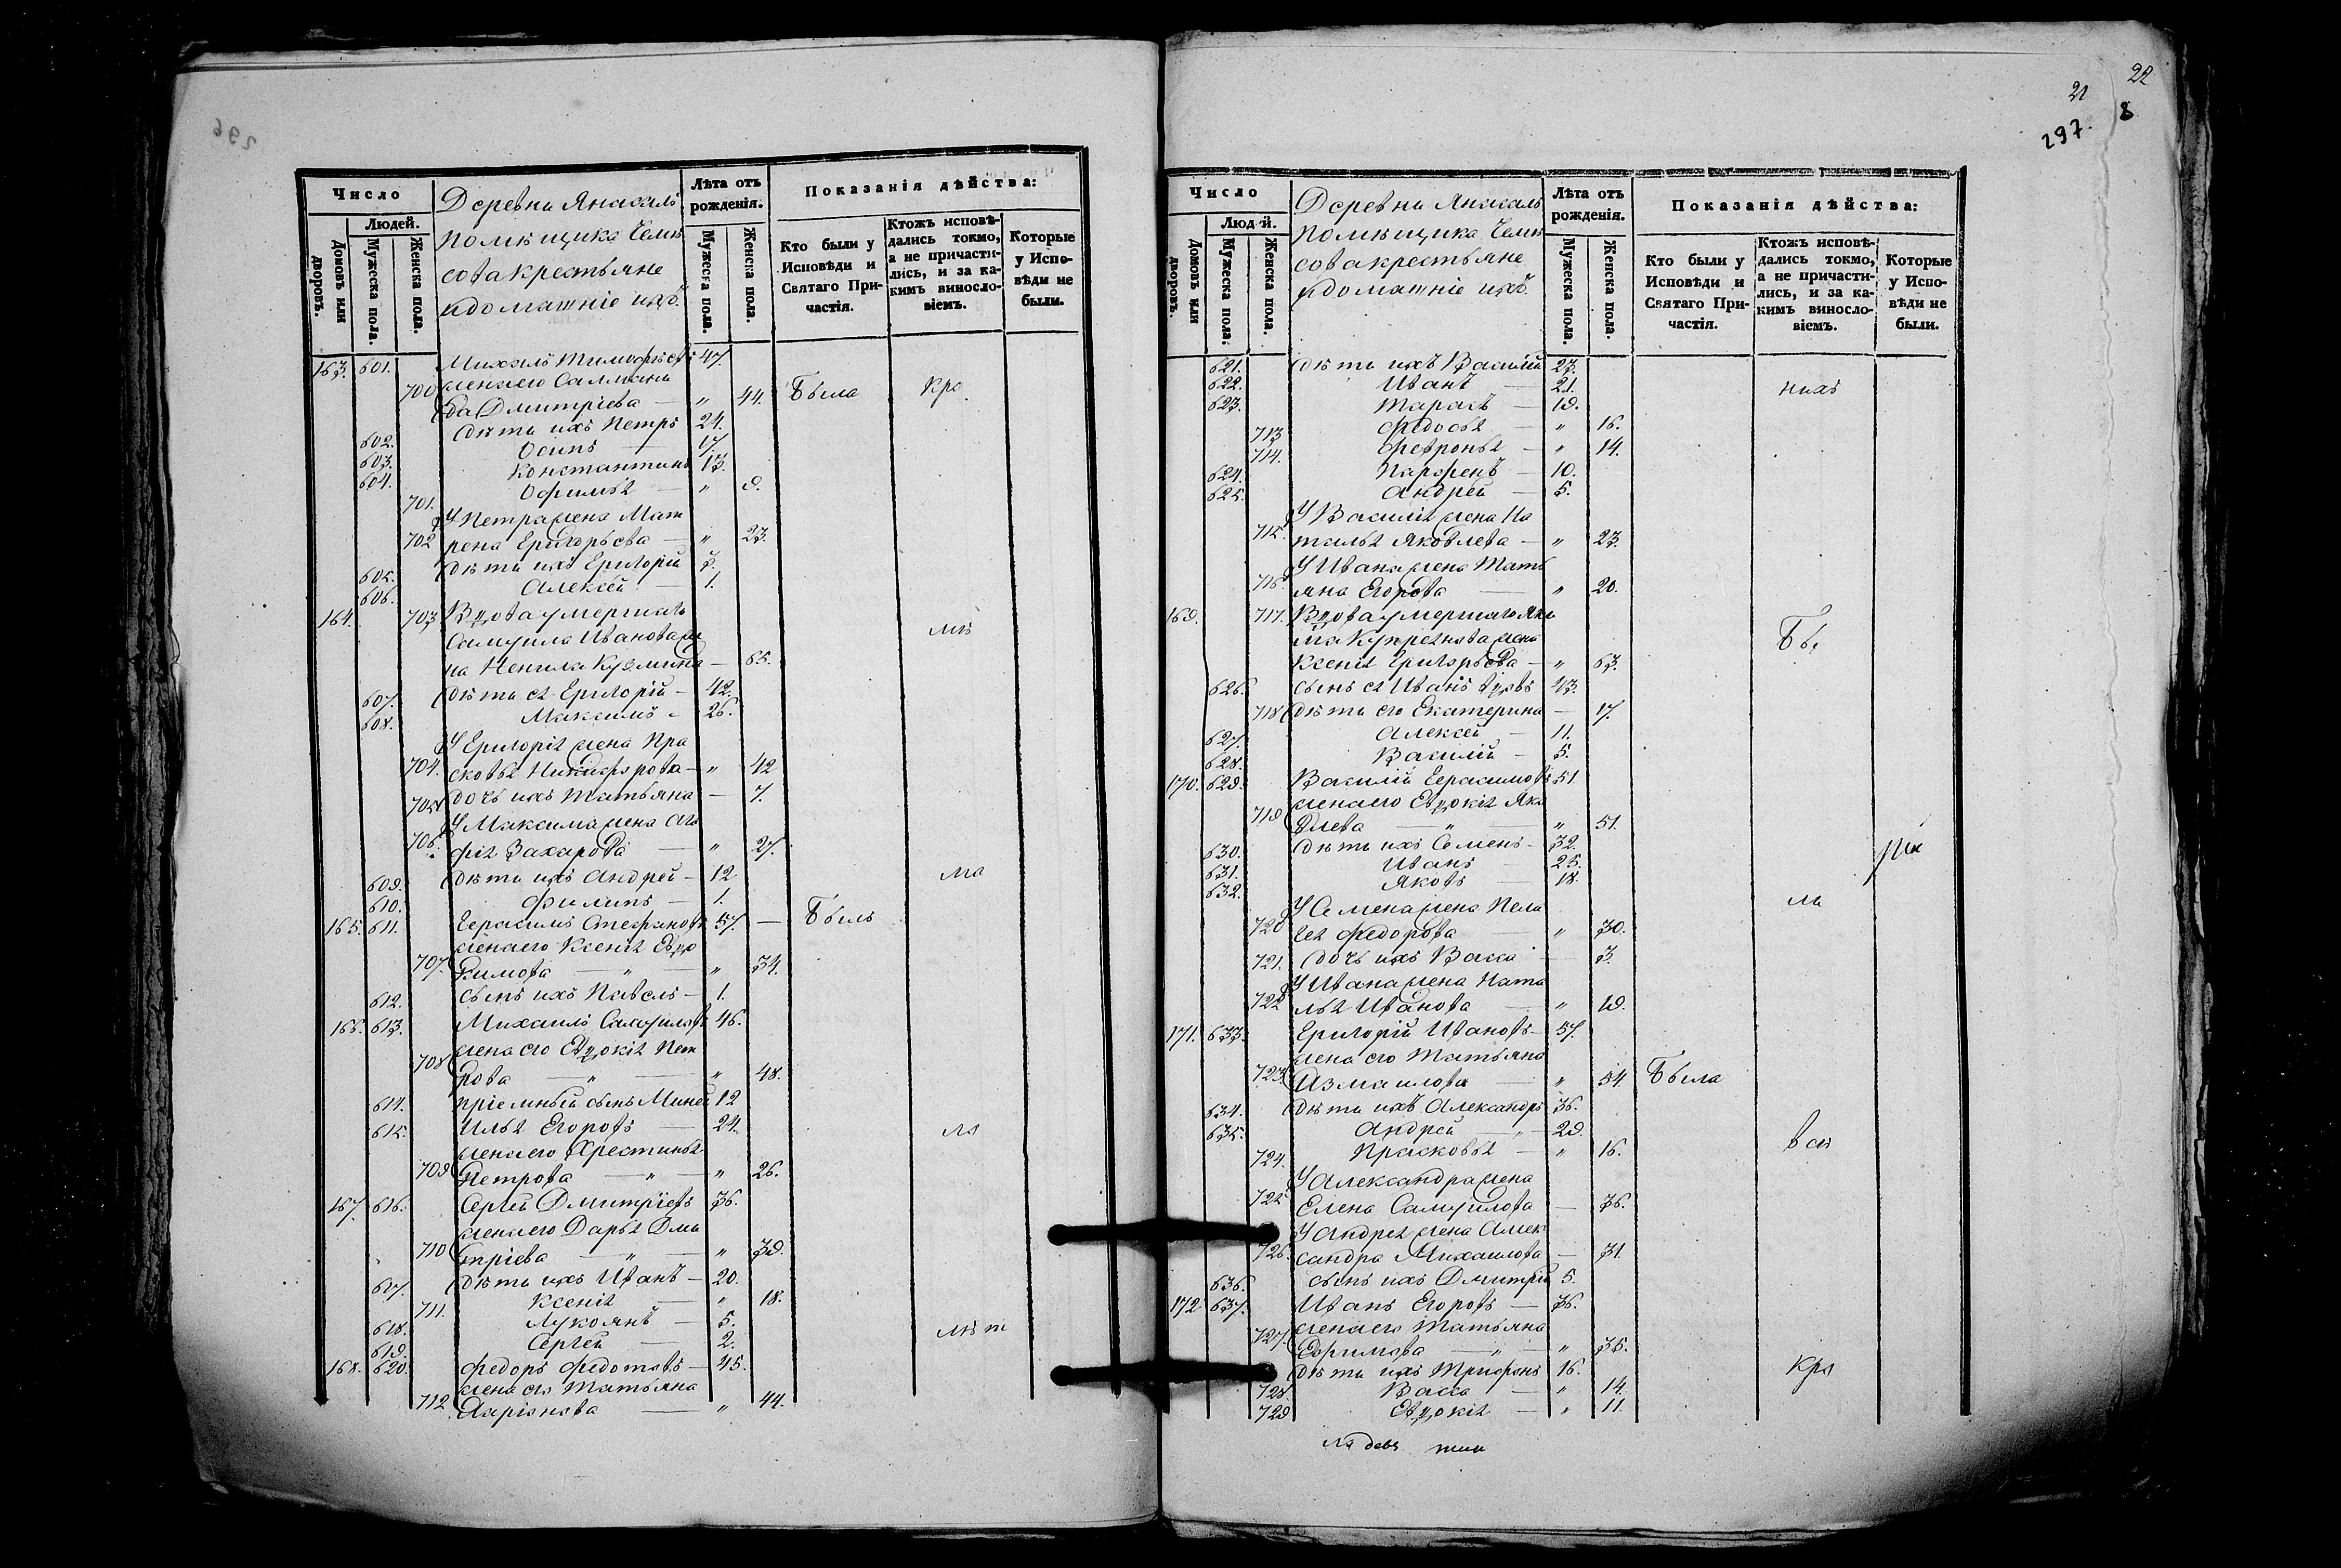 296
Число
Людей.
Домовъ или дворовъ.
Мужеска пола.
Женска пола.
Деревни
помѣщика
сова крестьяне
и домашніе ихъ.
Лѣта отъ рожденія.
Мужеска пола.
Женска пола.
Показанія дѣйства:
Кто были у Исповѣди и Святаго Причастія.
Ктожъ исповѣдались токмо, а не причастились, и за какимъ винословіемъ.
Которые у Исповѣди не были.
163. 601. Михаилъ Тимофѣевъ 47.
жена его
700 Дмитріева — „ 44. Была
602. дѣти ихъ Петръ 24.
603. Осипъ 17.
604. Константинъ 13.
701. Офимья — „ 9.
У Петра жена Мат
702 рена Григорьева — „ 23.
605. дѣти ихъ Григорій 3.
606. Алексѣй — 1.
164. 703 Вдова умершаго
Самуила Иванова же
на Ненила Кузмина — 65.
607. дѣти ея Григорій — 42.
608. Максимъ — 26.
У Григорія жена Пра
704. сковья Никифорова — „ 42
705 дочь ихъ Татьяна — 7.
У Максима жена Ага
706. фія Захарова — „ 27.
609. дѣти ихъ Андрей — 12
610. Филипъ — 1.
165. 611. Герасимъ Стефановъ 57. — Былъ
жена его Ксенія Евдо
707. кимова — „ — „ 34.
612. сынъ ихъ Павелъ — 1.
166. 613. Михаилъ Самуиловъ 46.
жена его Евдокія Пет
708 рова — „ — „ 48.
614. пріемный сынъ Миней 12
615. Илья Егоровъ — 24.
жена его Христинья
709 Петрова — „ — „ 26.
167. 616. Сергѣй Дмитріевъ 36.
жена его Дарья Дми
710 тріева — „ — „ 39.
617. дѣти ихъ Иванъ — 20.
711. Ксенія — „ 18.
618. Лукоянъ — 5.
619. Сергѣй — 2.
168. 620. Федоръ Федотовъ — 45.
жена его Татьяна
712. Ларіонова — „ 44.
22
21
8
297.
Число
Людей.
Домовъ или дворовъ.
Мужеска пола.
Женска пола.
Деревни
помѣщика
сова крестьяне
и домашніе ихъ.
Лѣта отъ рожденія.
Мужеска пола.
Женска пола.
Показанія дѣйства:
Кто были у Исповѣди и Святаго Причастія.
Ктожъ исповѣдались токмо, а не причастились, и за какимъ винословіемъ.
Которые у Исповѣди не были.
621. дѣти ихъ Василій 23.
622. Иванъ — 21. нихъ
623. Тарасъ — 19.
713 Федосья — „ 16.
714. Февронья — „ 14.
624. Парфенъ — 10.
625. Андрей — 5.
У Василія жена На
715. талья Яковлева — „ 23.
У Ивана жена Тать
716. яна Егорова — „ 20.
169. 717. Вдова умершаго
жена
Ксенія Григорьева — „ 63.
626. сынъ ея Иванъ вдовъ 43.
718 дѣти его Екатерина — 17.
627. Алексѣй — 11.
628. Василій — 5.
170. 629. Василій Герасимовъ 51
жена его Евдокія Яко
719 влева — „ — „ 51.
630. дѣти ихъ Семенъ — 32.
631. Иванъ — 25.
632. Яковъ — 18.
У Семена жена Пела
720 гея Федорова — „ 30.
721. дочь ихъ Васса — 3.
У Ивана жена Ната
722 лья Иванова — „ 19.
171. 633. Григорій Ивановъ — 57.
жена его Татьяна
723 Измаилова — „ 54. Была
634. дѣти ихъ Александръ 36.
635. Андрей — „ — 29.
724. Прасковья — „ 16.
У Александра жена
725. Елена Самуилова — 36.
У Андрея жена Алек
726. сандра Михаилова — 31.
636. сынъ ихъ Дмитрій 5.
172. 637. Иванъ Егоровъ — 36.
жена его Татьяна
727. Ефимова — „ — „ 35.
дѣти ихъ Трифонъ 16.
728. Васса — „ 14.
729 Евдокія — „ 11.